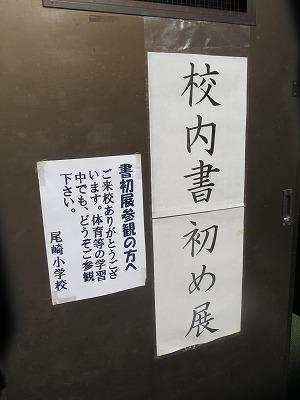 校内書初め展
書初展参観の方へ
ご来校ありがとうござ
います。体育等の学習
中でも、どうぞご参観
下さい。
尾崎小学校